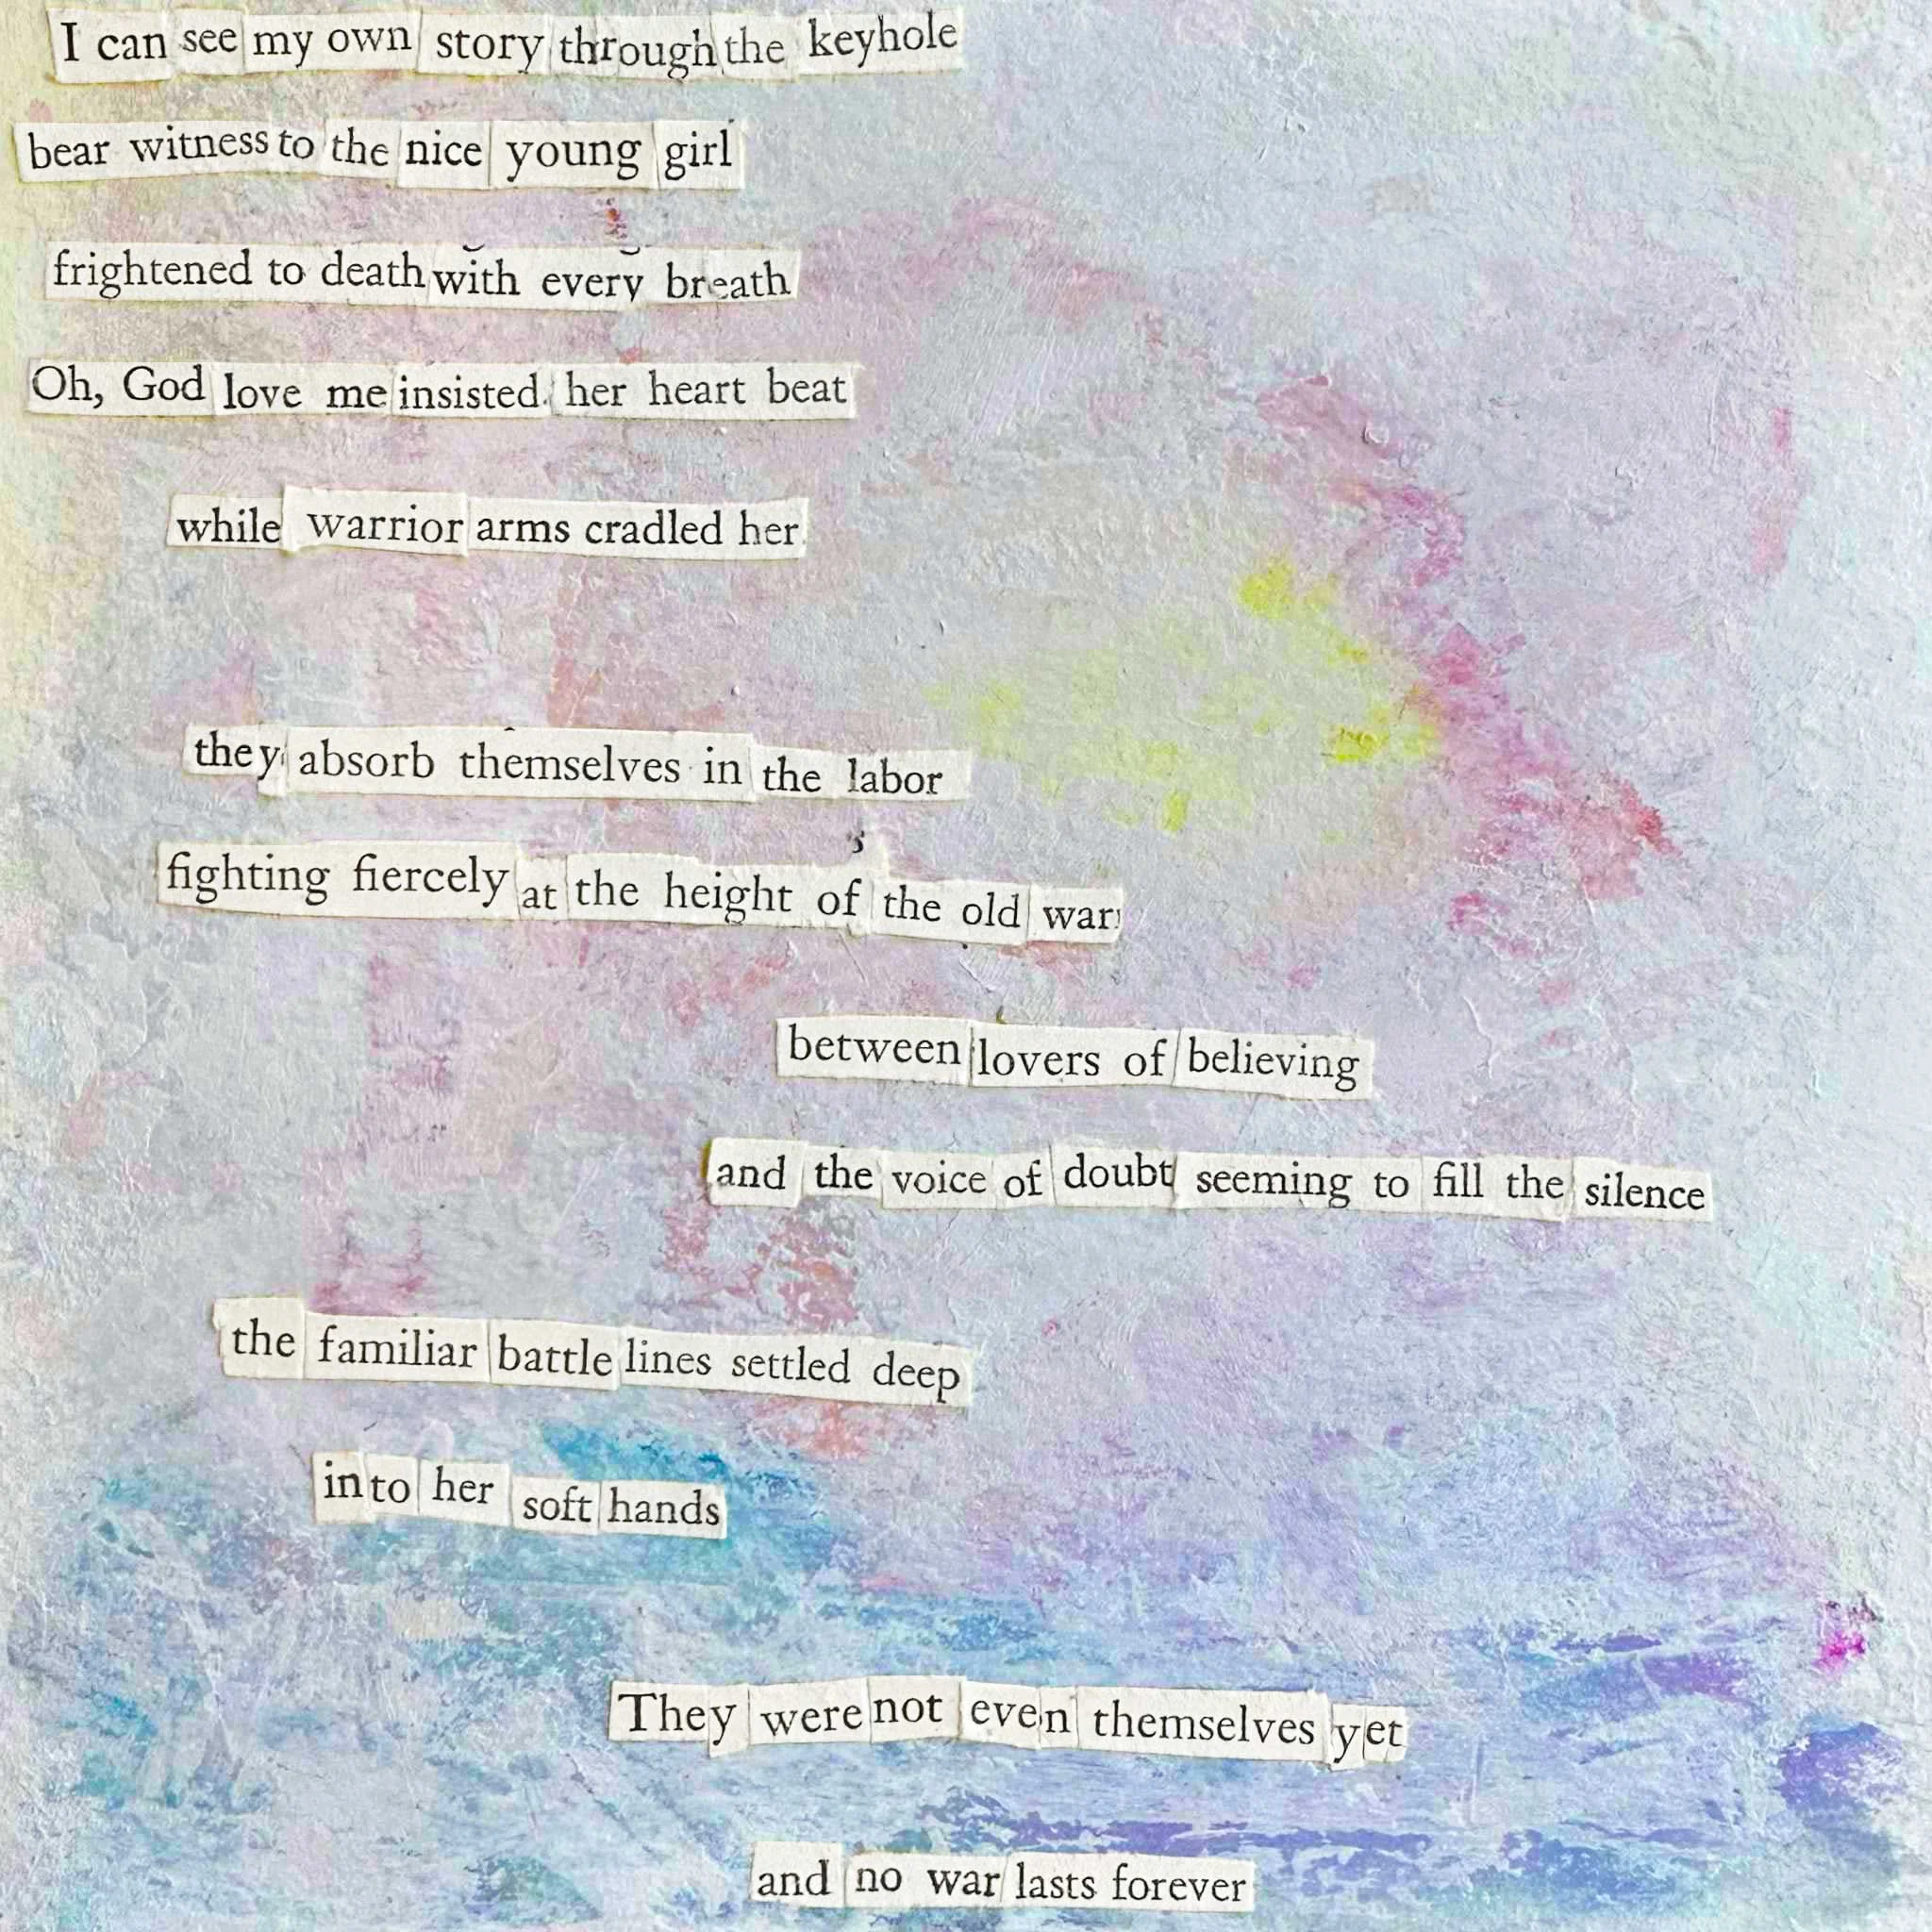 I can see my own story through the keyhole
bear witness to the nice young girl
frightened to death with every breath
Oh, God love me insisted her heart beat
while warrior arms cradled her
they absorb themselves in the labor
fighting fiercely at the height of the old war
between lovers of believing
and the voice of doubt seeming to fill the silence
the familiar battle lines settled deep
into her soft hands
They were not even themselves yet
and no war lasts forever